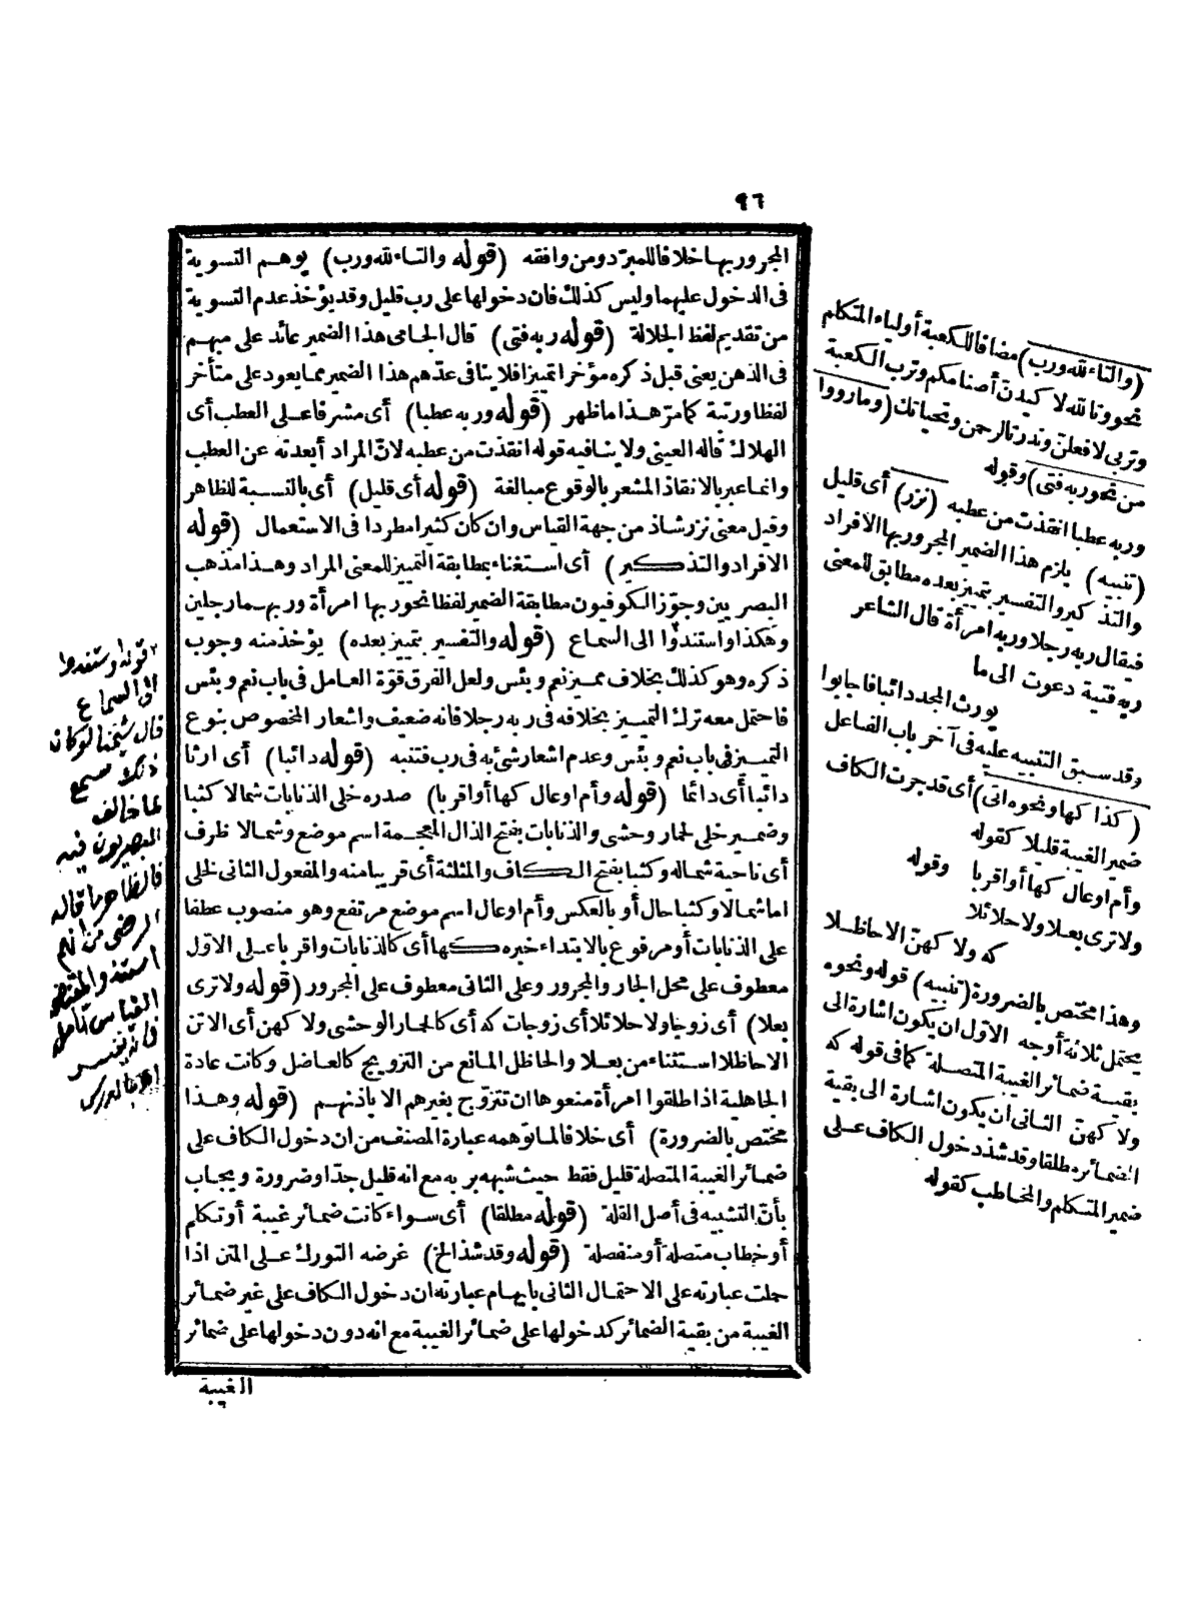 ٩٦
المجرور بها خلافا للمبرّد ومن وافقه (قوله والتاء لله ورب) يوهم التسوية
فى الدخول عليهما وليس كذلك فان دخولها على رب قليل وقد يؤخذ عدم التسوية
من تقديم لفظ الجلالة (قوله ربه فتى) قال الجامى هذا الضمير عائد على مبهم
فى الذهن يعنى قبل ذكره مؤخرا تمييزا فلا ينافى عدّهم هذا الضمير مما يعود على متأخر
لفظا ورتبة كما مرّ هذا ما ظهر (قوله وربه عطبا) أى مشرفا على العطب أى
الهلاك قاله العينى ولا ينافيه قوله انقذت من عطبه لانّ المراد أبعدته عن العطب
وانما عبر بالانقاذ المشعر بالوقوع مبالغة (قوله أى قليل) أى بالنسبة للظاهر
وقيل معنى نزر شاذ من جهة القياس وان كان كثيرا مطردا فى الاستعمال (قوله
الافراد والتذكير) أى استغناء بمطابقة التمييز للمعنى المراد وهذا مذهب
البصريين وجوّز الكوفيون مطابقة الضمير لفظا نحو ربها امرأة وربهما رجلين
وهكذا واستندوا الى السماع (قوله والتفسير بتمييز بعده) يؤخذ منه وجوب
ذكره وهو كذلك بخلاف مميز نعم وبئس ولعل الفرق قوّة العامل فى باب نعم وبئس
فاحتمل معه ترك التمييز بخلافه فى ربه رجلا فانه ضعيف واشعار المخصوص بنوع
التمييز فى باب نعم وبئس وعدم اشعار شئ به فى رب فتنبه (قوله دائبا) أى ارثا
دائبا أى دائما (قوله وأم اوعال كها أو اقربا) صدره خلى الذنابات شمالا كثبا
وضمير خلى لحمار وحشى والذنابات بفتح الذال المعجمة اسم موضع وشمالا ظرف
أى ناحية شماله وكثبا بفتح الكاف والمثلثة أى قريبا منه والمفعول الثانى لخلى
اما شمالا وكثبا حال أو بالعكس وأم اوعال اسم موضع مرتفع وهو منصوب عطفا
على الذنابات أو مرفوع بالابتداء خبره كها أى كالذنابات واقربا على الاوّل
معطوف على محل الجار والمجرور وعلى الثانى معطوف على المجرور (قوله ولا ترى
بعلا) أى زوجا ولا حلائلا أى زوجات كه أى كالحمار الوحشى ولا كهن أى الاتن
الا حاظلا استثناء من بعلا والحاظل المانع من التزويج كالعاضل وكانت عادة
الجاهلية اذا طلقوا امرأة منعوها ان تتزوّج بغيرهم الا باذنهم (قوله وهذا
مختص بالضرورة) أى خلافا لما توهمه عبارة المصنف من ان دخول الكاف على
ضمائر الغيبة المتصلة قليل فقط حيث شبهه بربه مع انه قليل جدّا وضرورة ويجاب
بأنّ التشبيه فى أصل القلة (قوله مطلقا) أى سواء كانت ضمائر غيبة أو تكلم
أو خطاب متصلة أو منفصلة (قوله وقد شذ الخ) غرضه التورك على المتن اذا
حملت عبارته على الاحتمال الثانى بايهام عبارته ان دخول الكاف على غير ضمائر
الغيبة من بقية الضمائر كدخولها على ضمائر الغيبة مع انه دون دخولها على ضمائر
الغيبة
(والتاء لله ورب) مضافا للكعبة أو لياء المتكلم
نحو وتالله لاكيدن أصنامكم وترب الكعبة
وتربى لافعلنّ وندر تالرحمن وتحياتك (وما رووا
من نحو ربه فتى) وقوله
وربه عطبا انقذت من عطبه (نزر) أى قليل
(تنبيه) يلزم هذا الضمير المجرور بها الافراد
والتذكير والتفسير بتمييز بعده مطابق للمعنى
فيقال ربه رجلا وربه امرأة قال الشاعر
ربه فتية دعوت الى ما
يورث المجد دائبا فاجابوا
وقد سبق التنبيه عليه فى آخر باب الفاعل
(كذا كها ونحوه اتى) أى قد جرت الكاف
ضمير الغيبة قليلا كقوله
وأم اوعال كها أو اقربا وقوله
ولا ترى بعلا ولا حلائلا
كه ولا كهنّ الا حاظلا
وهذا مختص بالضرورة (تنبيه) قوله ونحوه
يحتمل ثلاثة أوجه الاول ان يكون اشارة الى
بقية ضمائر الغيبة المتصلة كما فى قوله كه
ولا كهنّ الثانى ان يكون اشارة الى بقية
الضمائر مطلقا وقد شذ دخول الكاف على
ضمير المتكلم والمخاطب كقوله
قوله واستندوا
الى السماع
قال شيخنا لو كان
ذلك سمع
لما خالف
البصريون فيه
فالظاهر ما قاله
الرضى من انهم
القياس تأمله